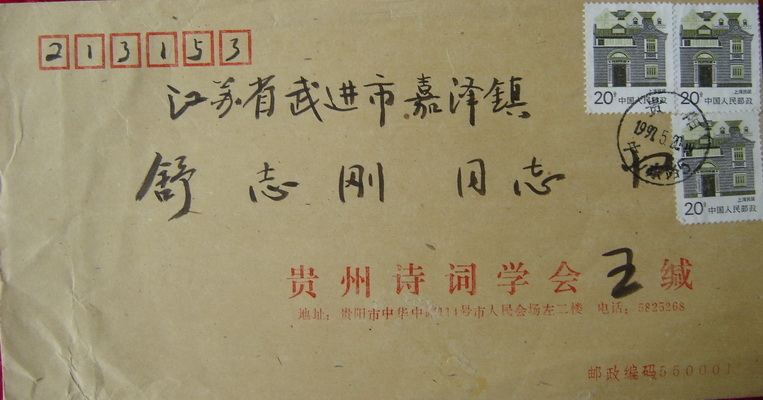 213153
上海民居
20分 中国人民邮政
上海民居
20分 中国人民邮政
上海民居
20分 中国人民邮政
江苏省武进市嘉泽镇
舒志刚 同志 收
贵州诗词学会 王 缄
地址: 贵阳市中华中路114号市人民会场左二楼 电话: 5825268
邮政编码550001